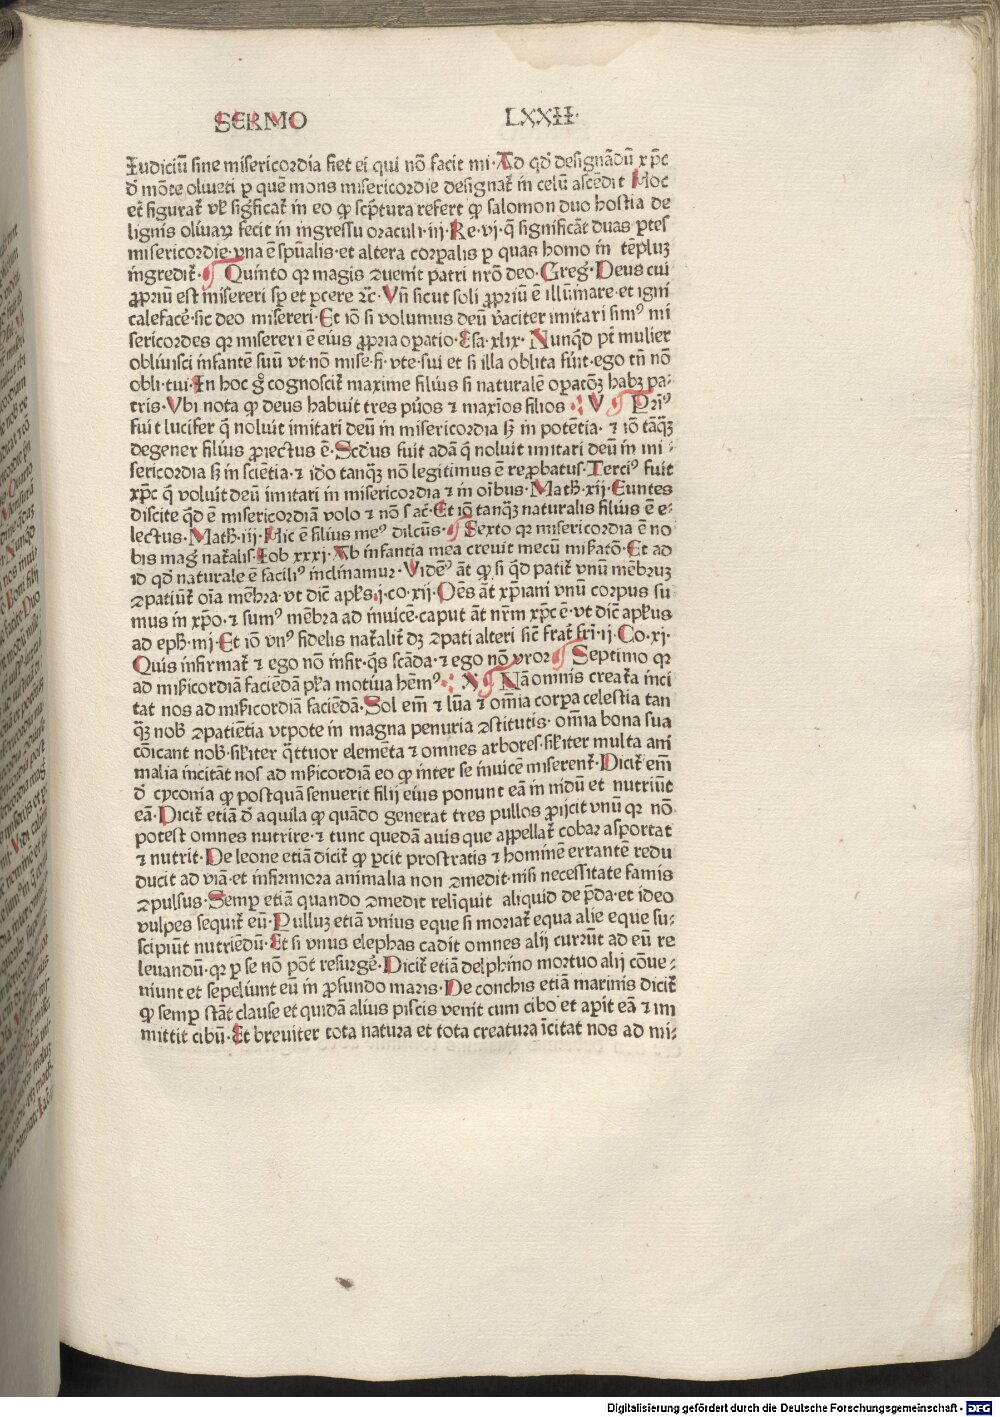 SERMO LXXII·
Iudiciū sine misericordia fiet ei qui nō facit mi· Ad qd̕ designādū xp̄c
d̕ mōte oliueti ꝑ quē mons misericordie designat᷑ in celū ascēdit Hoc
et᷑ figurat᷑ vl̕ sig̕ficat᷑ in eo ꝙ scp̄tura refert ꝙ salomon duo hostia de
lignis oliuaꝝ fecit in ingressu oraculi·iij·Re·vj·q̄ significāt duas ꝑtes
misericordie·vna ē spūalis·et altera corꝑalis ꝑ quas homo in tēpluꝫ
ingredit᷑·¶ Quinto qꝛ magis ꝯuenit patri nr̄o deo·Greg̕·Deus cui
ꝓpriū est misereri sꝑ et ꝑcere ⁊c̄·Vn̄ sicut soli ꝓpriū ē illūinare·et igni
calefacē·sic deo misereri·Et iō si volumus deū v̕aciter imitari sim⁹ mi
sericordes qꝛ misereri ē eius ꝓpria oꝑatio·Esa·xlix· Nunqd̕ pt̄ mulier
obliuisci infantē suū vt·nō mise·fi·vte·sui et si illa oblita fu̕it·ego tn̄ nō
obli·tui·In hoc g̊ cognoscit᷑ maxime filius si naturalē oꝑatōꝫ habꝫ pa⸗
tris·Vbi nota ꝙ deus habuit tres pu̕os ⁊ maxīos filios ⁖ V ¶ Prī⁹
fuit lucifer q̄ noluit imitari deū in misericordia sꝫ in potētia·⁊ iō tāq̄ꝫ
degener filius ꝓiectus ē·Scd̕us fuit adā q̄ noluit imitari deū in mi⸗
sericordia sꝫ in sciētia·⁊ id̕o tanq̄ꝫ nō legitimus ē reꝓbatus·Terci⁹ fuit
xp̄c q̄ voluit deū imitari in misericordia ⁊ in oi̅bus·Math̕·xij·Euntes
discite qd̕ ē misericordiā volo ⁊ nō s ac̄·Et iō tanq̄ꝫ naturalis filius ē e⸗
lectus·Math̕·iij·Hic ē filius me⁹ dilcūs·¶ Sexto qꝛ misericordia ē no
bis mag̕ nat᷑alis·Iob xxxj·Ab infantia mea creuit mecū mis̕atō·Et ad
id qd̕ naturale ē facili⁹ inclinamur·Videm⁹ āt ꝙ si qd̕ patit᷑ vnū mēbruꝫ
ꝯpatiūt᷑ oīa mēbra·vt dic̄ apl̕s·j·co·xij·Om̄s āt xp̄iani vnū corpus su
mus in xp̄o·⁊ sum⁹ mēbra ad inuicē·caput āt nr̄m xp̄c ē·vt dic̄ apl̕us
ad eph̕·iiij·Et iō vn⁹ fidelis nat᷑alit᷑ dꝫ ꝯpati alteri sic̄ frat᷑ fr̄i·ij·Co·xj·
Quis infirmat᷑ ⁊ ego nō infir·q̄s scāda·⁊ ego nō vror¶ Septimo qꝛ
ad mis̕icordiā faciēdā pl̕a motiua hēm⁹⁖ X ¶ Nā omnis creat᷑a inci
tat nos ad mis̕icordiā faciēdā·Sol em̄ ⁊ lūa ⁊ om̄ia corꝑa celestia tan
q̄ꝫ nob̕ ꝯpatiētia vtpote in magna penuria ꝯstitutis· om̄ia bona sua
cōicant nob̕·sil̕iter q̄ttuor elemēta ⁊ omnes arbores·sil̕iter multa ani
malia incitāt nos ad mis̕icordiā eo ꝙ inter se inuicē miserent᷑·Dicit᷑ em̄
d̕ cyconia ꝙ postquā senuerit filij eius ponunt eā in nidū et nutriūt
eā·Dicit᷑ etiā d̕ aquila ꝙ quādo generat tres pullos ꝓijcit vnū qꝛ nō
potest omnes nutrire·⁊ tunc quedā auis que appellat᷑ cobar asportat
⁊ nutrit·De leone etiā dicit᷑ ꝙ ꝑcit prostratis ⁊ hominē errantē redu
ducit ad viā·et infirmiora animalia non ꝯmedit·nisi necessitate famis
ꝯpulsus·Semꝑ etiā quando ꝯmedit reliquit aliquid de p̄da·et ideo
vulpes sequit᷑ eū·Pulluꝫ etiā vnius eque si moriat᷑ equa alie eque su⸗
scipiūt nutriēdū·Et si vnus elephas cadit omnes alij currūt ad eū re
leuandū·qꝛ ꝑ se nō pōt resurgē·Dicit᷑ etiā delphino mortuo alij cōue⸗
niunt et sepeliunt eū in ꝓfundo maris·De conchis etiā marinis dicit᷑
ꝙ semꝑ stāt clause et quidā alius piscis venit cum cibo et aꝑit eā ⁊ im
mittit cibū·Et breuiter tota natura et tota creatura īcitat nos ad mi⸗
Digitalisierung gefördert durch die Deutsche Forschungsgemeinschaft - DFG